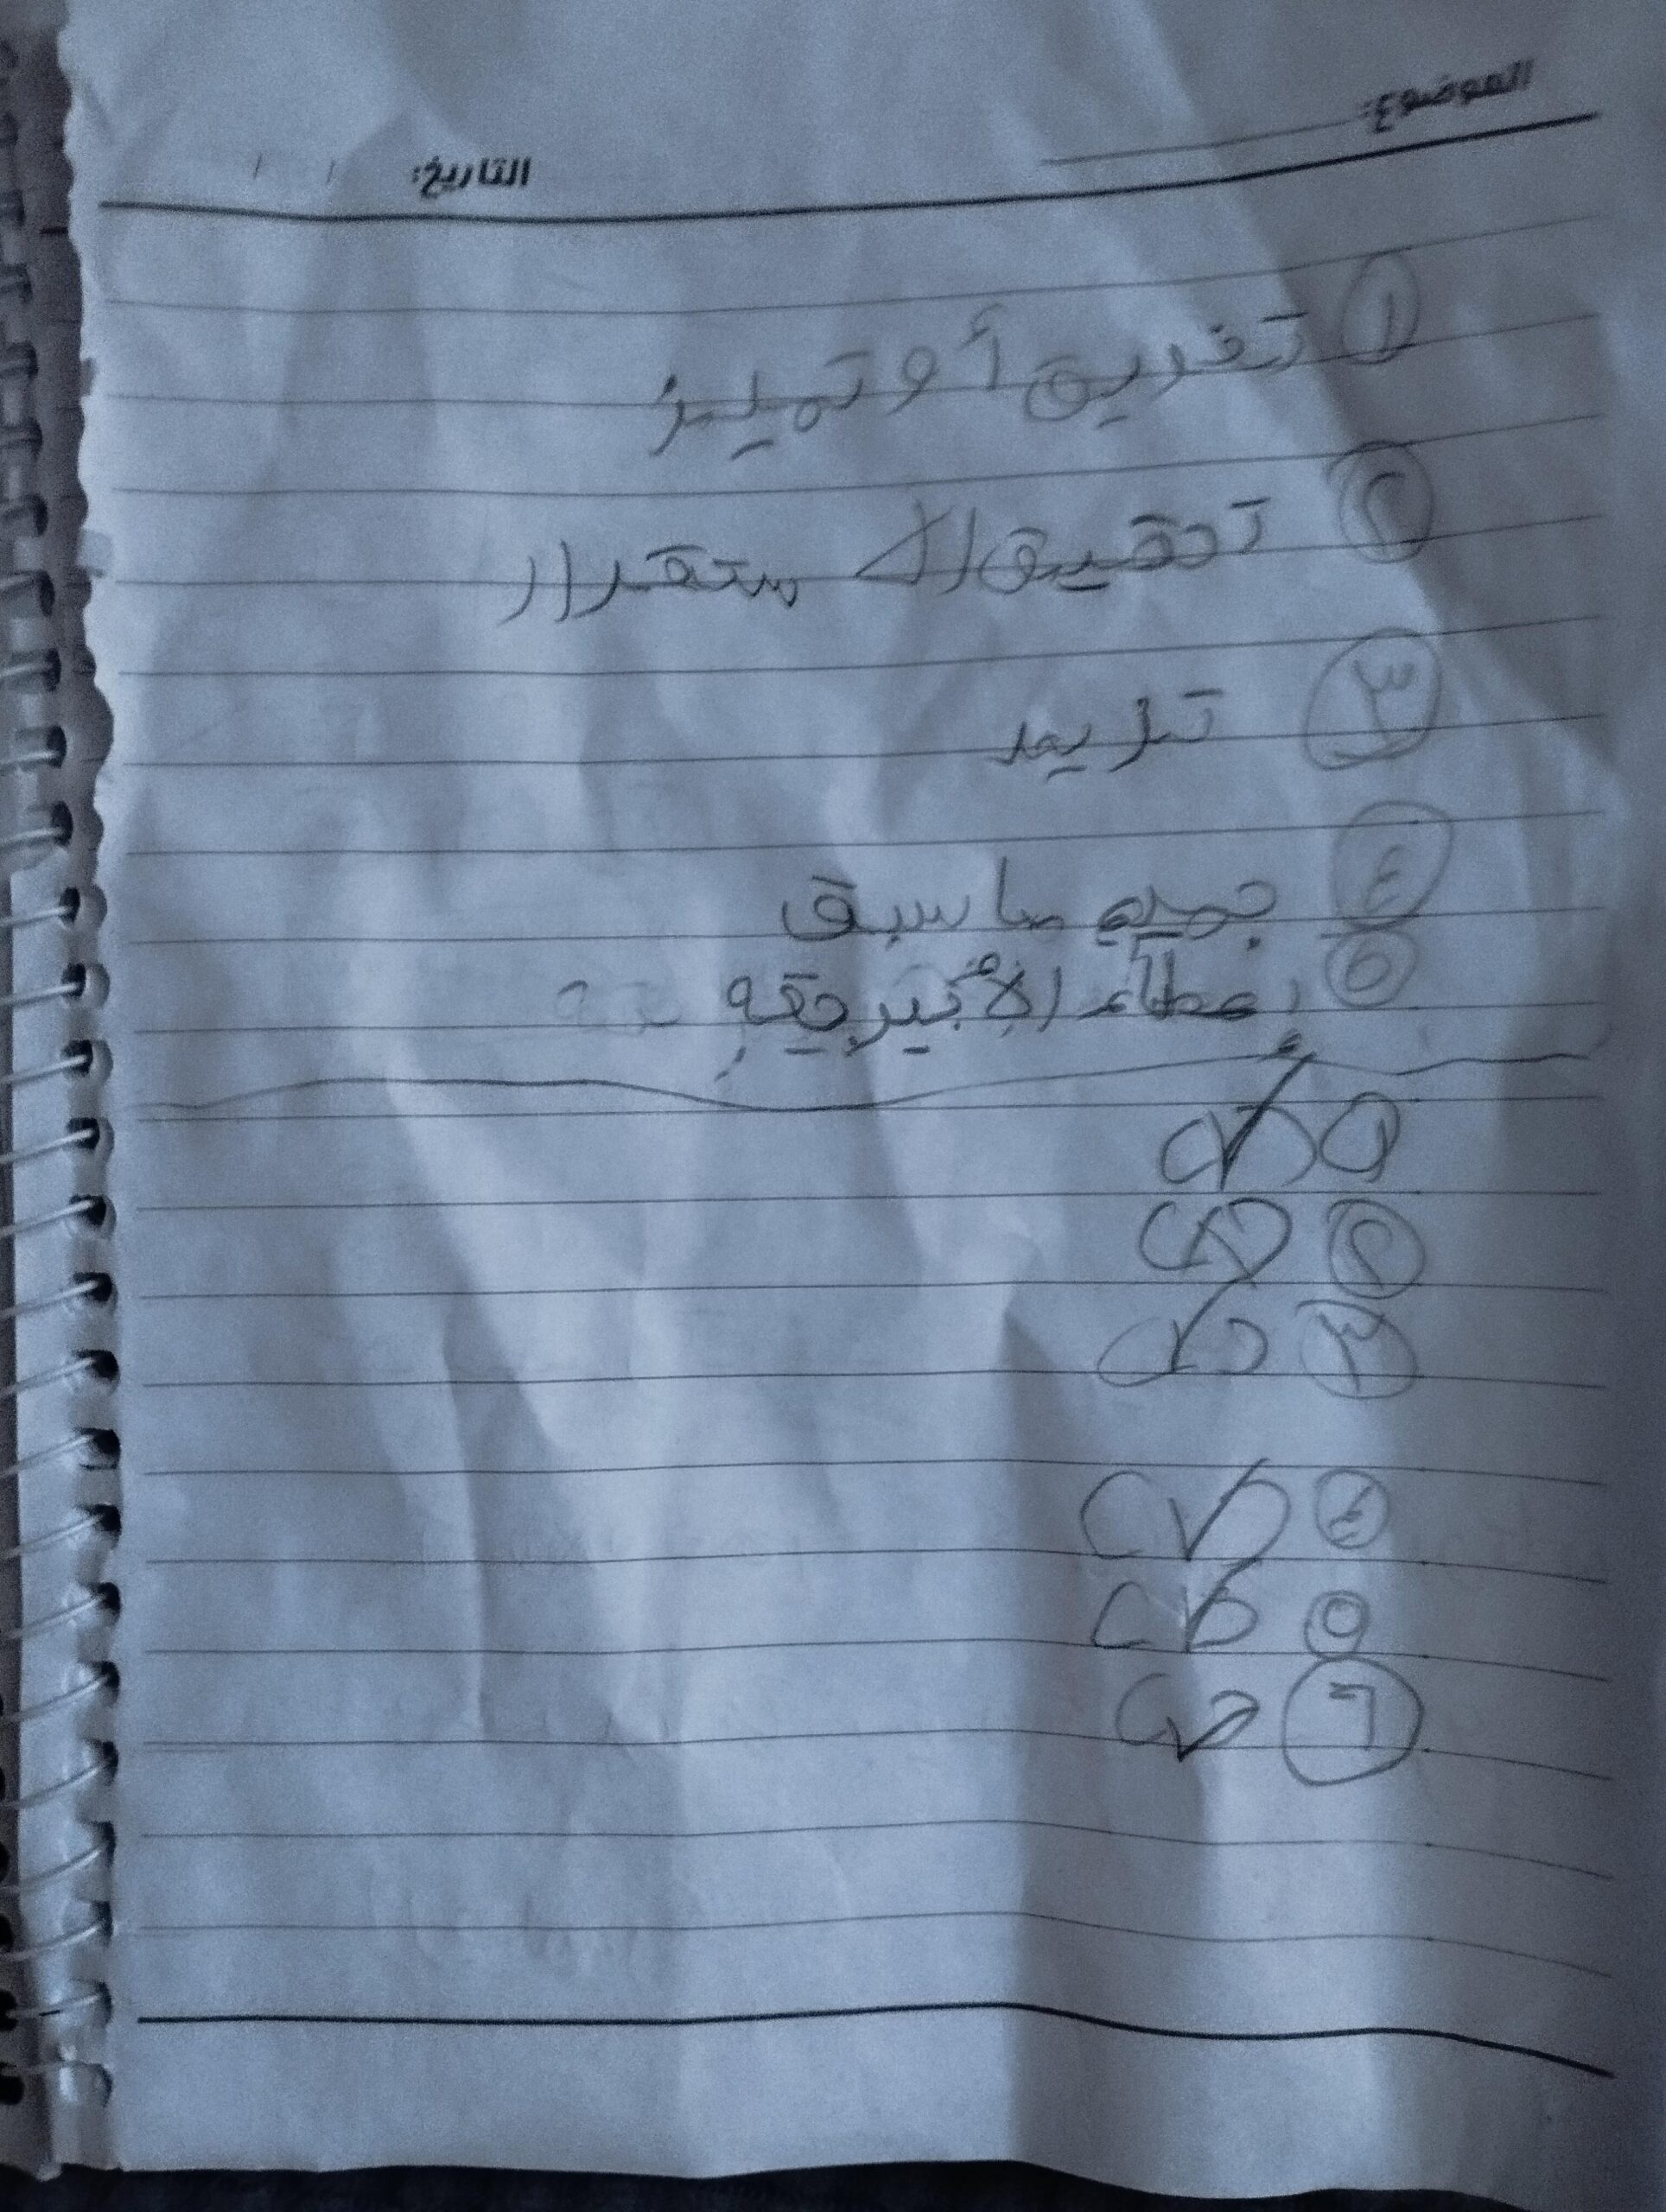 الموضوع:
التاريخ: / /
١ تفريق أو تمييز
٢ تحقيق الاستقرار
٣ تزيد
٤ جميع ما سبق
٥ إعطاء الأجير حقه
١ (✓)
٢ (✗)
٣ (✓)
٤ (✓)
٥ (✓)
٦ (✓)